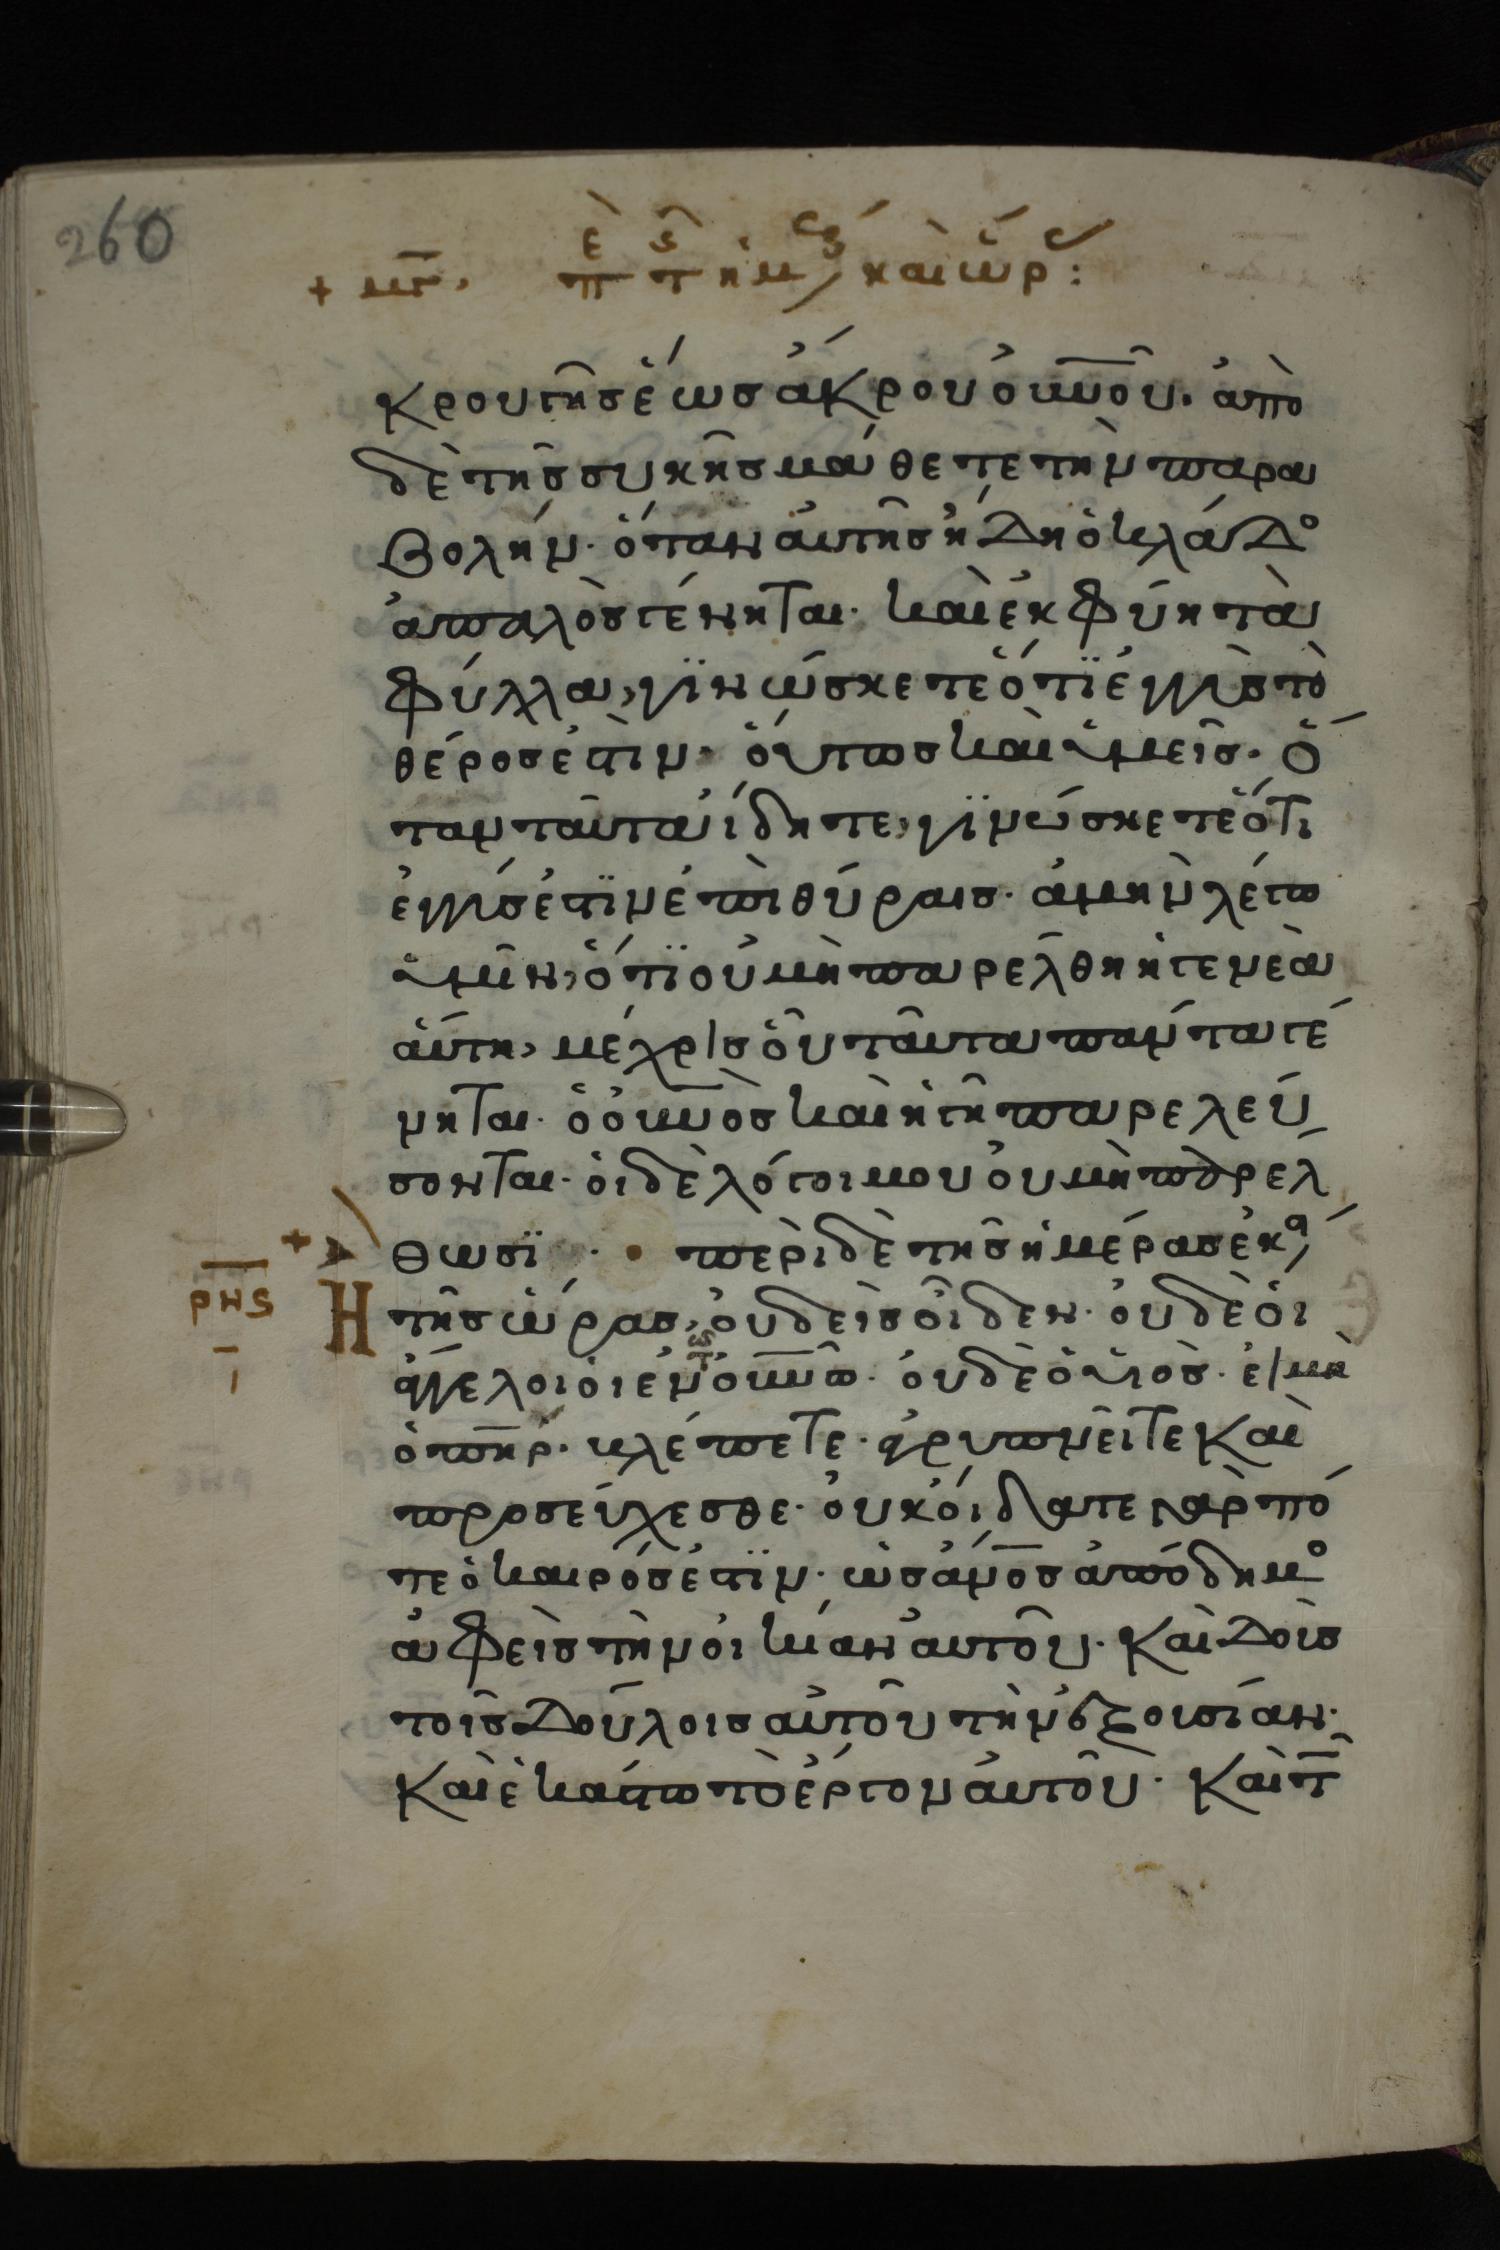 260
κρου γῆς ἕως ἄκρου οὐνοῦ. ἀπὸ
δὲ τῆς συκῆς μάθετε τὴν παρα
βολήν. ὅταν αὐτῆς ἤδη ὁ κλάδο
ἁπαλὸς γένηται. καὶ ἐκφύη τὰ
φύλλα, γϊνώσκετε ὅτϊ ἐγγὺς τὸ
θέρος ἐστὶν. ὅυτως καὶ ὑμεῖς. ὅ
ταν ταῦτα ἴδητε, γϊνώσκετε ὅτι
ἐγγύς ἐστϊν ἐπὶ θύραις. ἀμὴν λέγω
ὑμῖν, ὅτϊ οὐ μὴ παρέλθη ἡ γενεὰ
ἅυτη, μέχρις ὅυ ταῦτα πάντα γέ
νηται. ὁ οὐνὸς καὶ ἡ γῆ παρελεύ
σονται. ὁι δὲ λόγοι μου ὀυ μὴ παρέλ
θωσϊ. περὶ δὲ τῆς ἡμέρας ἐκ
ρης
Η
τῆς ὥρας, ὀυδεὶς ὂιδεν. ὀυδὲ ὁι
ἄγγελοι ὁι ἐν τω οὐνῶ. ὀυδὲ ὁ ὑιὸς. ἐι μὴ
ὁ πηρ. βλέπετε. ἀγρυπνεῖτε καὶ
προσεύχεσθε. ὀυκ ὄιδατε γὰρ πό
τε ὁ καιρός ἐστϊν. ὡς ἄνος ἀπόδημο
ἀφεὶς τὴν ὀικίαν ἀυτοῦ. καὶ δοὺς
τοῖς δούλοις ἀυτοῦ τὴν ἐξουσίαν.
καὶ ἑκάστω τὸ ἔργον ἀυτοῦ. καὶ τ